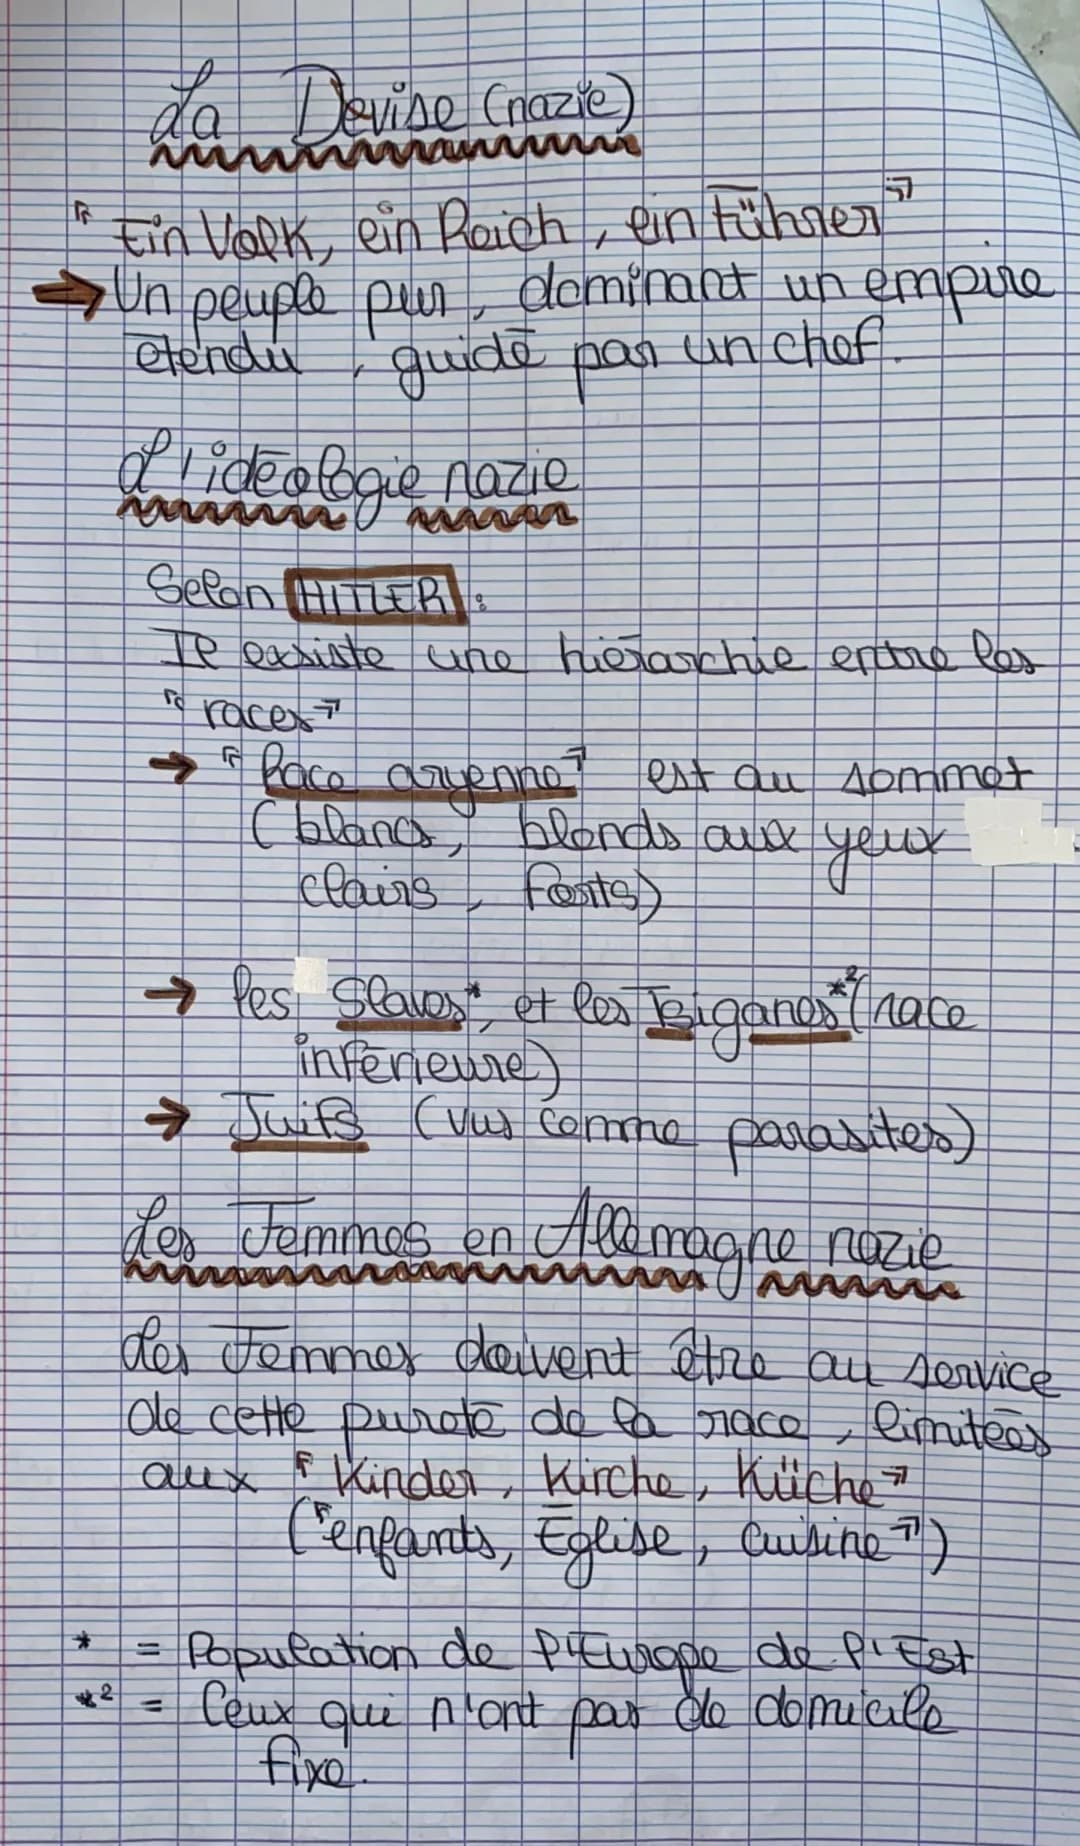 La Devise (nazie)
" Ein Volk, ein Reich, ein Führer "
→ Un peuple pur, dominant un empire
étendu, guidé par un chef.
L'idéologie nazie
Selon HITLER :
Il existe une hiérarchie entre les
" races "
→ " Race aryenne " est au sommet
(blancs, blonds aux yeux
clairs, forts)
→ les Slaves*, et les Tsiganes*² (race
inférieure)
→ Juifs (vus comme parasites)
Les Femmes en Allemagne nazie
Les Femmes doivent être au service
de cette pureté de la race, limitées
aux " Kinder, Kirche, Küche "
("enfants, Église, Cuisine")
* = Population de l'Europe de l'Est
*² = Ceux qui n'ont pas de domicile
fixe.